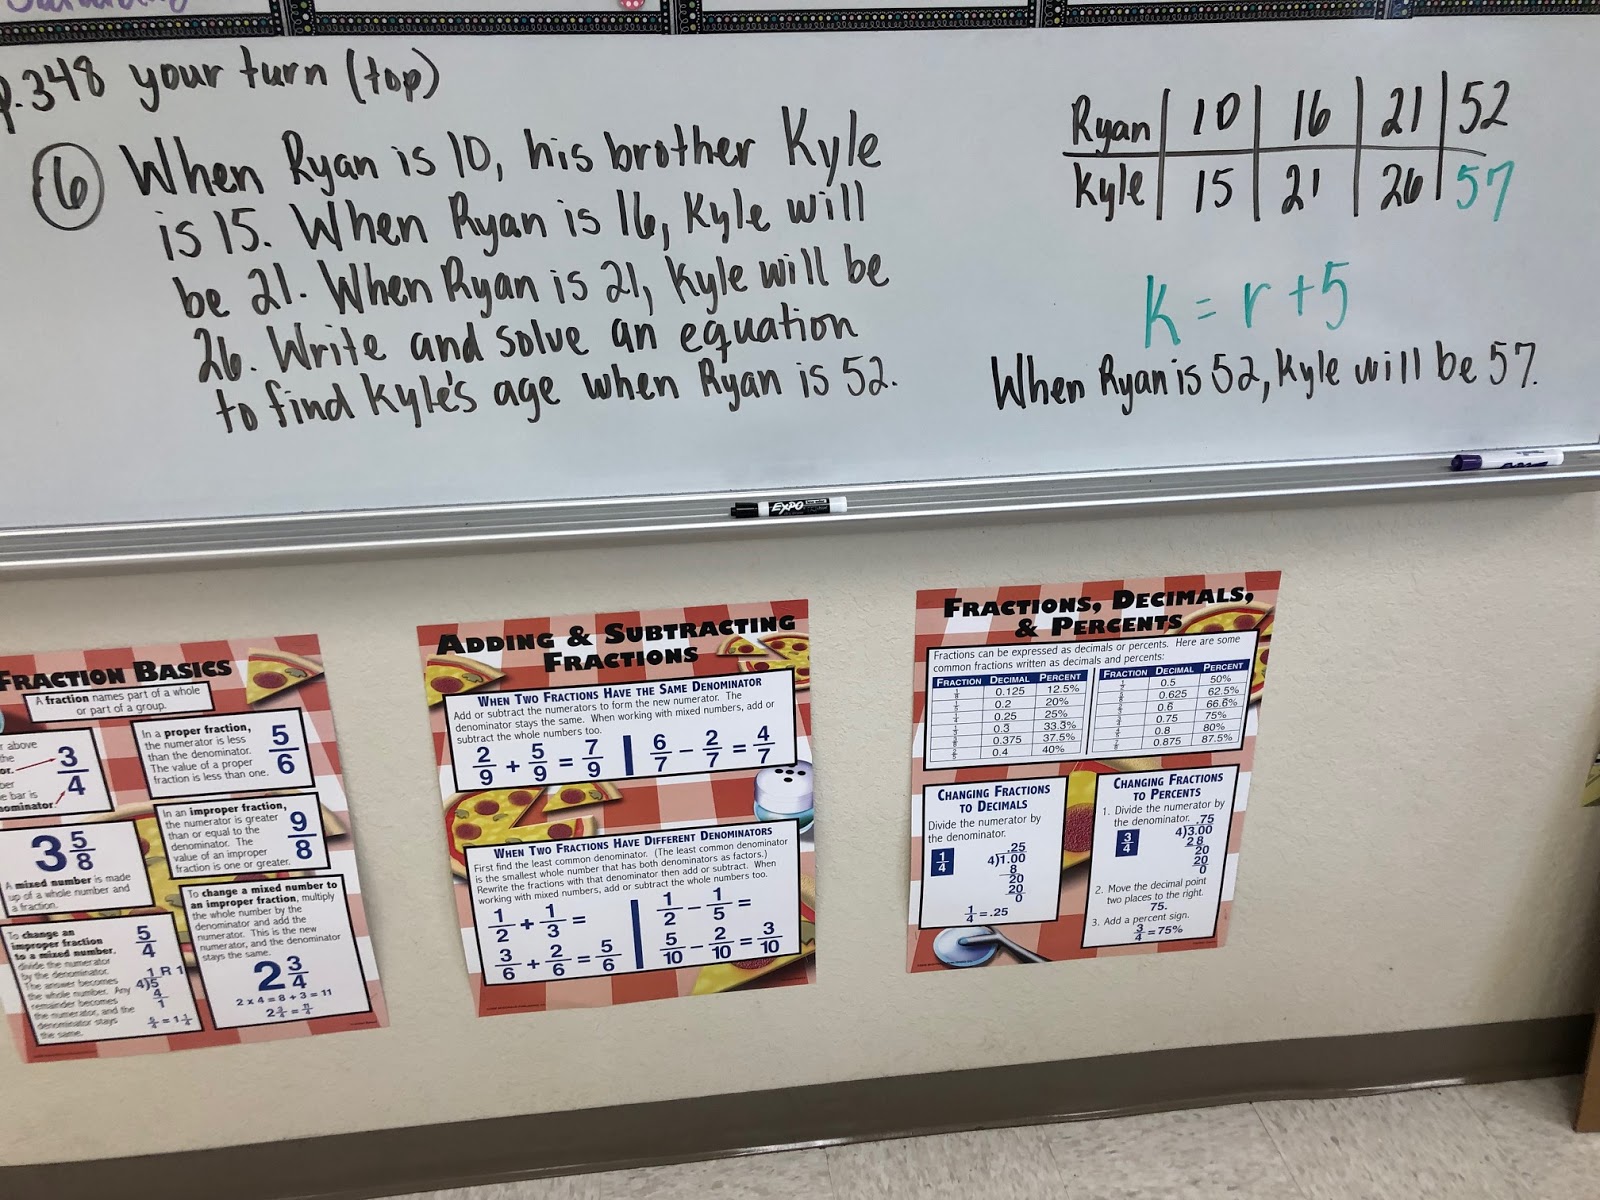 p.348 your turn (top)
6 When Ryan is 10, his brother Kyle
is 15. When Ryan is 16, Kyle will
be 21. When Ryan is 21, Kyle will be
26. Write and solve an equation
to find Kyle's age when Ryan is 52.
Ryan 10 16 21 52
Kyle 15 21 26 57
K = r + 5
When Ryan is 52, Kyle will be 57.
EXPO
FRACTION BASICS
A fraction names part of a whole
or part of a group.
above
the
or.
3/4
e bar is
nominator.
In a proper fraction,
the numerator is less
than the denominator.
The value of a proper
fraction is less than one.
5/6
In an improper fraction,
the numerator is greater
than or equal to the
denominator. The
value of an improper
fraction is one or greater.
9/8
3 5/8
A mixed number is made
up of a whole number and
a fraction.
To change an
improper fraction
to a mixed number,
divide the numerator
by the denominator.
The answer becomes
the whole number. Any
remainder becomes
the numerator, and the
denominator stays
the same.
5/4
1 R 1
4)5
4
1
5/4 = 1 1/4
To change a mixed number to
an improper fraction, multiply
the whole number by the
denominator and add the
numerator. This is the new
numerator, and the denominator
stays the same.
2 3/4
2 x 4 = 8 + 3 = 11
2 3/4 = 11/4
ADDING & SUBTRACTING
FRACTIONS
WHEN TWO FRACTIONS HAVE THE SAME DENOMINATOR
Add or subtract the numerators to form the new numerator. The
denominator stays the same. When working with mixed numbers, add or
subtract the whole numbers too.
2/9 + 5/9 = 7/9 | 6/7 − 2/7 = 4/7
WHEN TWO FRACTIONS HAVE DIFFERENT DENOMINATORS
First find the least common denominator. (The least common denominator
is the smallest whole number that has both denominators as factors.)
Rewrite the fractions with that denominator then add or subtract. When
working with mixed numbers, add or subtract the whole numbers too.
1/2 + 1/3 =
3/6 + 2/6 = 5/6
1/2 − 1/5 =
5/10 − 2/10 = 3/10
FRACTIONS, DECIMALS,
& PERCENTS
Fractions can be expressed as decimals or percents. Here are some
common fractions written as decimals and percents:
FRACTION DECIMAL PERCENT
0.125 12.5%
0.2 20%
0.25 25%
0.3 33.3%
0.375 37.5%
0.4 40%
FRACTION DECIMAL PERCENT
0.5 50%
0.625 62.5%
0.6 66.6%
0.75 75%
0.8 80%
0.875 87.5%
CHANGING FRACTIONS
TO DECIMALS
Divide the numerator by
the denominator.
1/4
.25
4)1.00
8
20
20
0
1/4 = .25
CHANGING FRACTIONS
TO PERCENTS
1. Divide the numerator by
the denominator.
3/4
.75
4)3.00
28
20
20
0
2. Move the decimal point
two places to the right.
75.
3. Add a percent sign.
3/4 = 75%